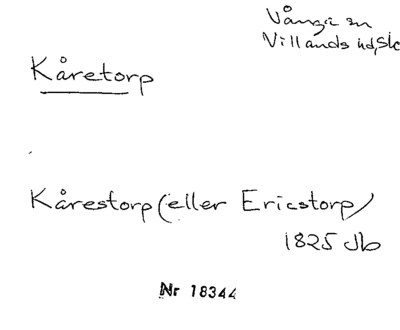 Vånga sn
Villands hd, Sk
Kåretorp
Kårestorp (eller Ericstorp)
1825 Jb
Nr 18344